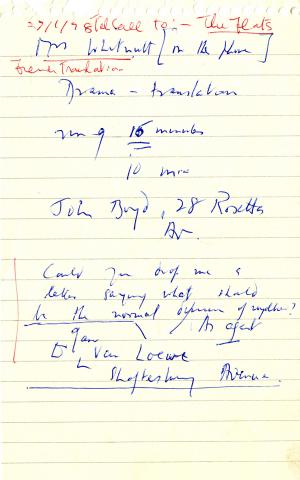 27/1/98 Tel Call to:- The Flats
Mrs [on the phone]
French Translation
Drama - translation
run of 15 minutes
10 min
John Boyd, 28 Rosetta
Av.
Could you drop me a
letter saying what should
be the normal of
As agent
Jan
Van Loewe
Shaftesbury Avenue.